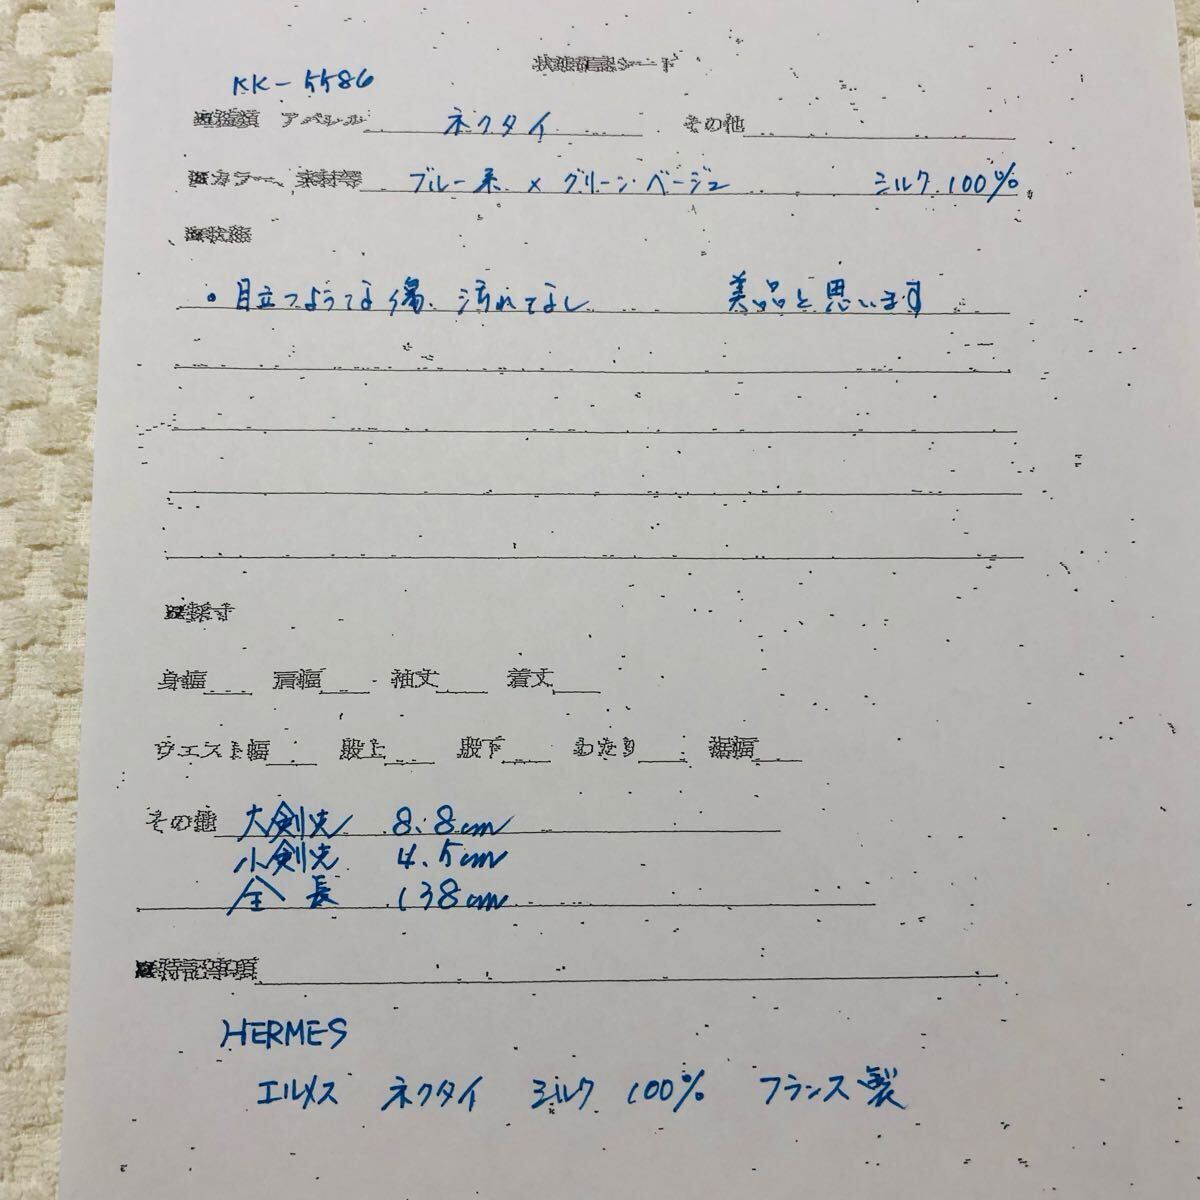 状態確認シート
KK-5586
■種類 アパレル ネクタイ その他
■カラー、素材等 ブルー系 × グリーン・ベージュ シルク 100%
■状態
・目立つような傷、汚れてなし 美品と思います
■採寸
身幅 肩幅 袖丈 着丈
ウエスト幅 股上 股下 わたり 裾幅
その他 大剣先 8.8cm
小剣先 4.5cm
全長 138cm
■特記事項
HERMES
エルメス ネクタイ シルク 100% フランス製